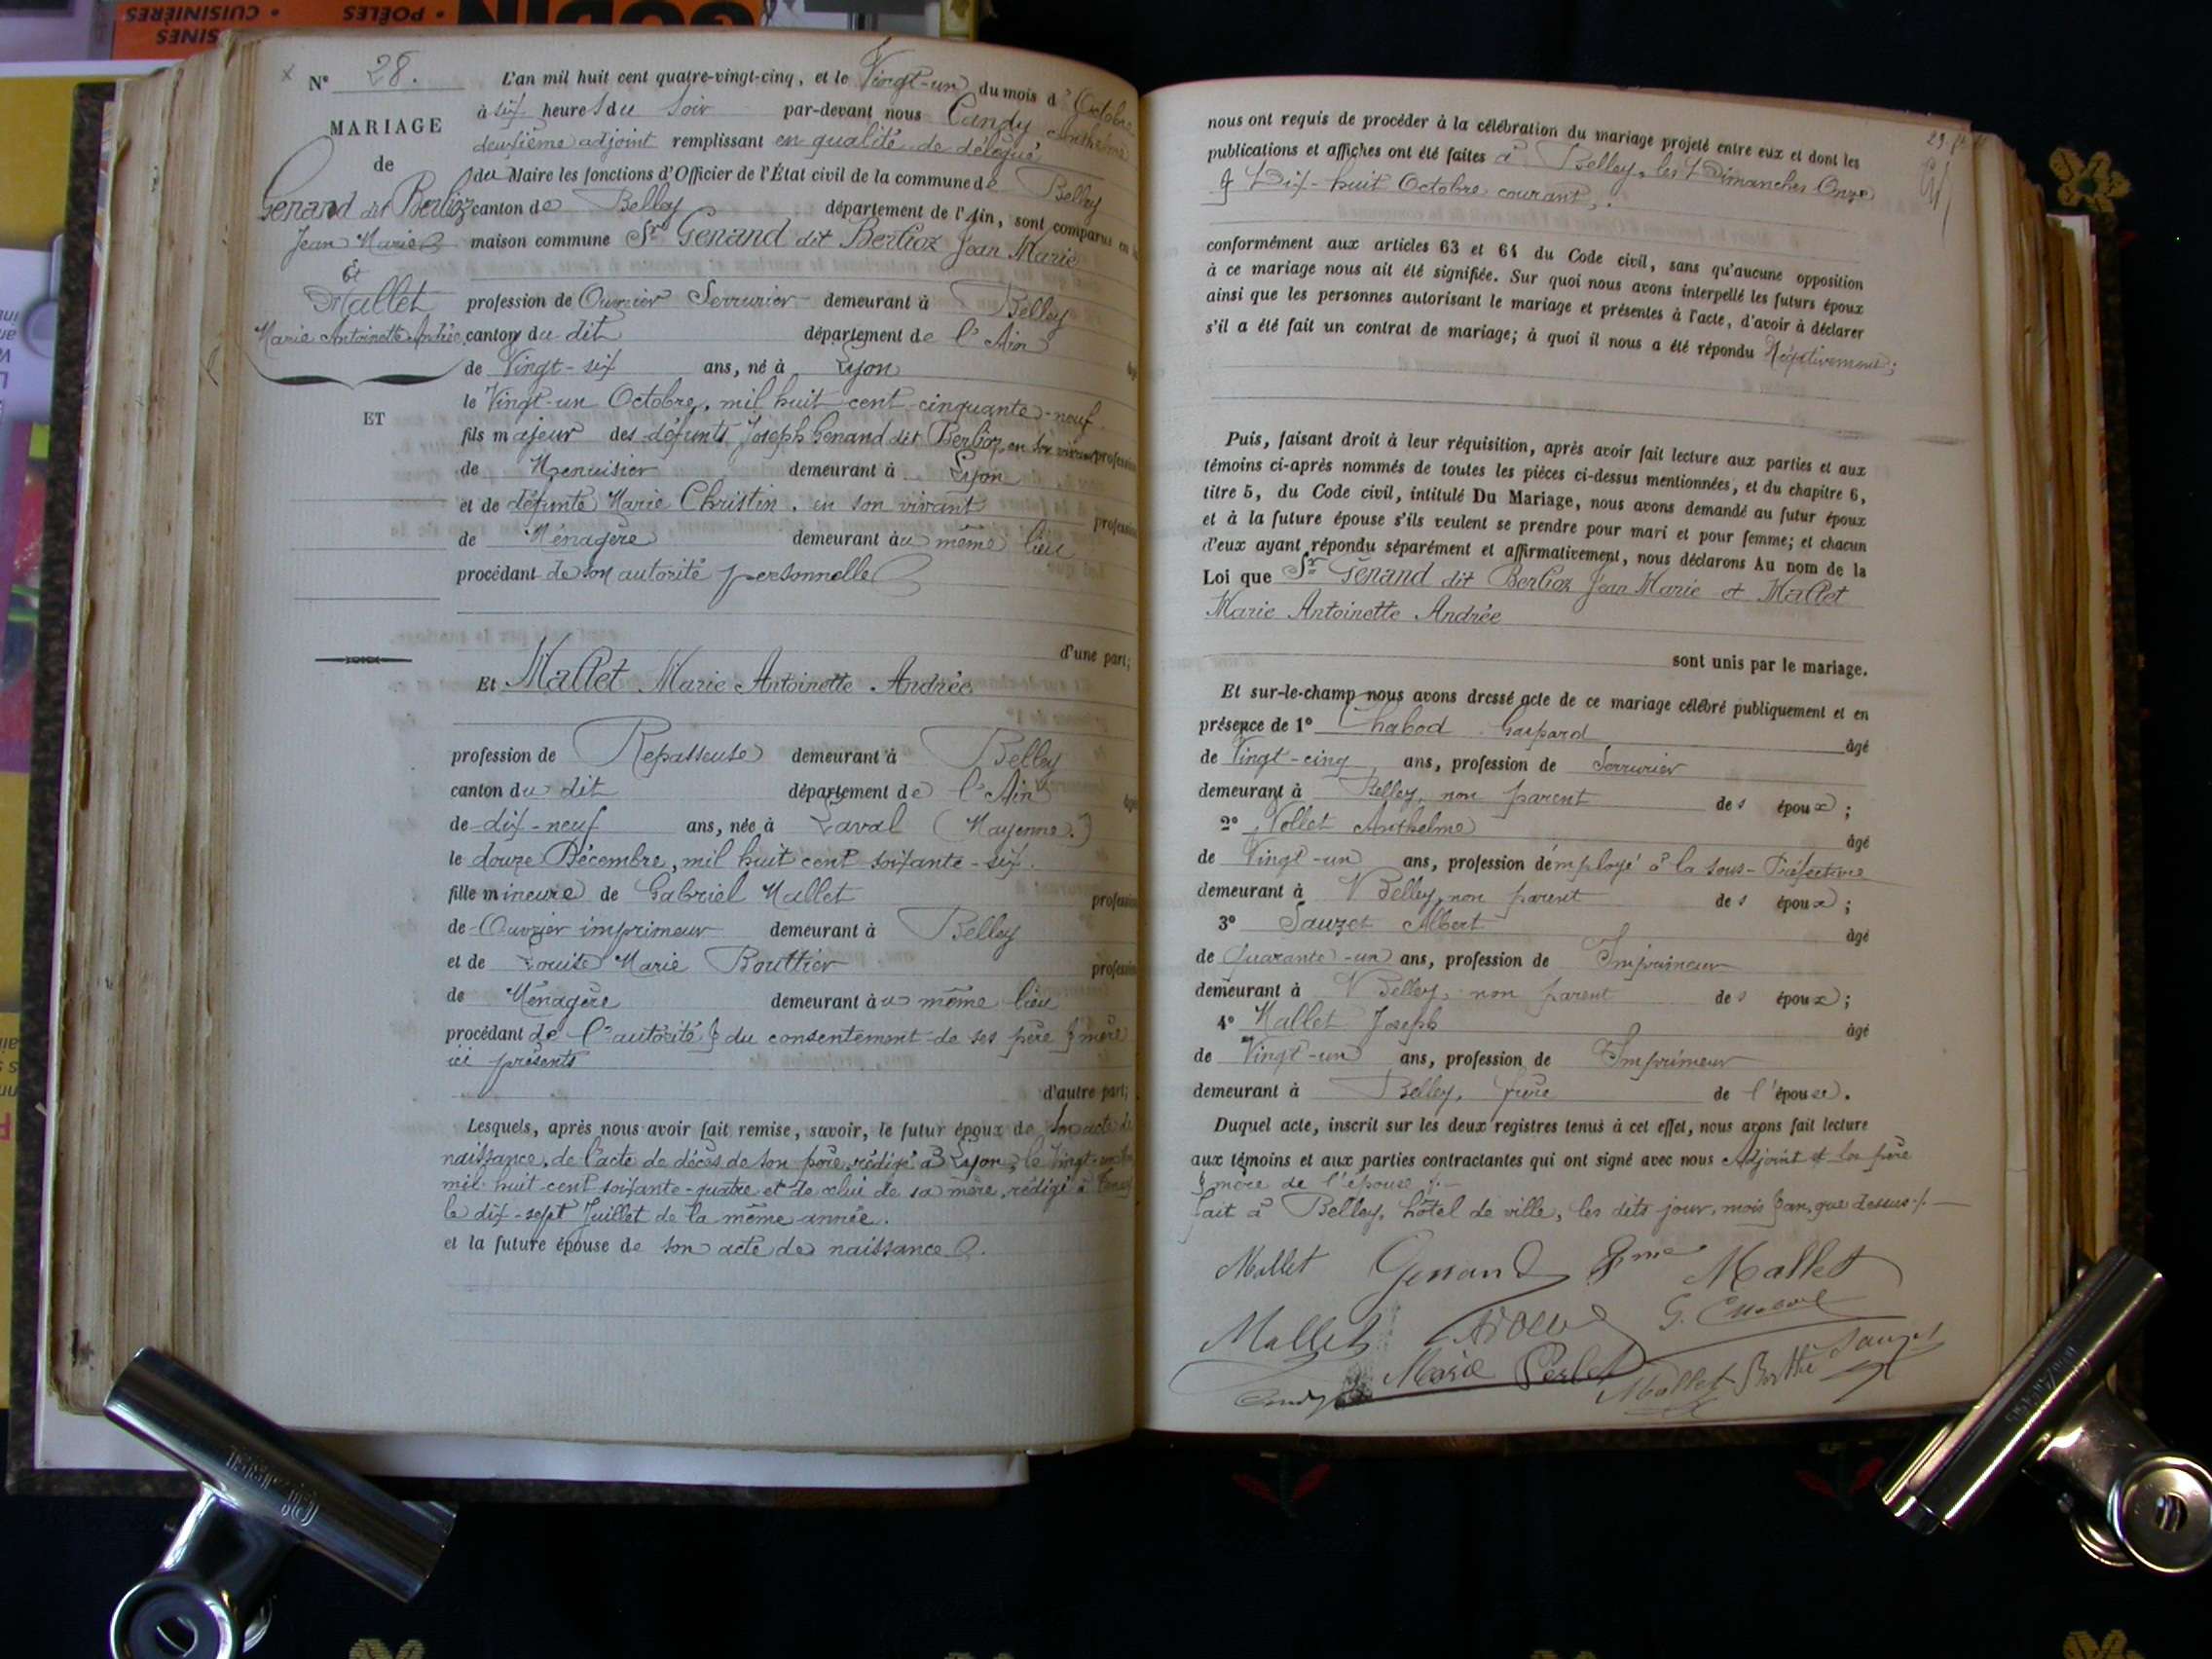 N° 28.
MARIAGE
de
Genand dit Berlioz
Jean Marie
Et
Mallet
Marie Antoinette Andrée
ET
L'an mil huit cent quatre-vingt-cinq, et le Vingt-un du mois d'Octobre
à six heures du soir par-devant nous Candy Anthelme
deuxième adjoint remplissant en qualité de délégué
du Maire les fonctions d'Officier de l'État civil de la commune de Belley
canton de Belley département de l'Ain, sont comparus en la
maison commune Sr Genand dit Berlioz Jean Marie
profession de Ouvrier Serrurier demeurant à Belley
canton du dit département de l'Ain
de Vingt-six ans, né à Lyon
le Vingt-un Octobre, mil huit cent cinquante-neuf
fils majeur des défunts Joseph Genand dit Berlioz, en son vivant profession
de Menuisier demeurant à Lyon
et de défunte Marie Christin, en son vivant profession
de Ménagère demeurant au même lieu
procédant de son autorité personnelle
d'une part;
Et Mallet Marie Antoinette Andrée
profession de Repasseuse demeurant à Belley
canton du dit département de l'Ain
de dix-neuf ans, née à Laval (Mayenne.)
le douze Décembre, mil huit cent soixante-six.
fille mineure de Gabriel Mallet profession
de Ouvrier imprimeur demeurant à Belley
et de Louise Marie Bouttier profession
de Ménagère demeurant au même lieu
procédant de l'autorité & du consentement de ses père & mère
ici présents
d'autre part;
Lesquels, après nous avoir fait remise, savoir, le futur époux de son acte de
naissance, de l'acte de décès de son père, rédigé à Lyon, le Vingt
mil huit cent soixante-quatre et de celui de sa mère, rédigé à
le dix-sept Juillet de la même année.
et la future épouse de son acte de naissance.
nous ont requis de procéder à la célébration du mariage projeté entre eux et dont les
publications et affiches ont été faites à Belley, les Dimanches Onze
& Dix-huit Octobre courant,
conformément aux articles 63 et 64 du Code civil, sans qu'aucune opposition
à ce mariage nous ait été signifiée. Sur quoi nous avons interpellé les futurs époux
ainsi que les personnes autorisant le mariage et présentes à l'acte, d'avoir à déclarer
s'il a été fait un contrat de mariage; à quoi il nous a été répondu Négativement;
Puis, faisant droit à leur réquisition, après avoir fait lecture aux parties et aux
témoins ci-après nommés de toutes les pièces ci-dessus mentionnées, et du chapitre 6,
titre 5, du Code civil, intitulé Du Mariage, nous avons demandé au futur époux
et à la future épouse s'ils veulent se prendre pour mari et pour femme; et chacun
d'eux ayant répondu séparément et affirmativement, nous déclarons Au nom de la
Loi que Sr Genand dit Berlioz Jean Marie et Mallet
Marie Antoinette Andrée
sont unis par le mariage.
Et sur-le-champ nous avons dressé acte de ce mariage célébré publiquement et en
présence de 1° Chabod Gaspard âgé
de Vingt-cinq ans, profession de Serrurier
demeurant à Belley, non parent des époux;
2° Vollet Anthelme âgé
de Vingt-un ans, profession d'employé à la sous-Préfecture
demeurant à Belley, non parent des époux;
3° Sauzet Albert âgé
de Quarante-un ans, profession de Imprimeur
demeurant à Belley, non parent des époux;
4° Mallet Joseph âgé
de Vingt-un ans, profession de Imprimeur
demeurant à Belley, frère de l'épouse.
Duquel acte, inscrit sur les deux registres tenus à cet effet, nous avons fait lecture
aux témoins et aux parties contractantes qui ont signé avec nous Adjoint et les père
& mère de l'épouse
fait à Belley, hôtel de ville, les dits jour, mois & an, que dessus
Mallet Genand Mallet
Mallet
Marie Perlet Mallet Berthe Sauzet